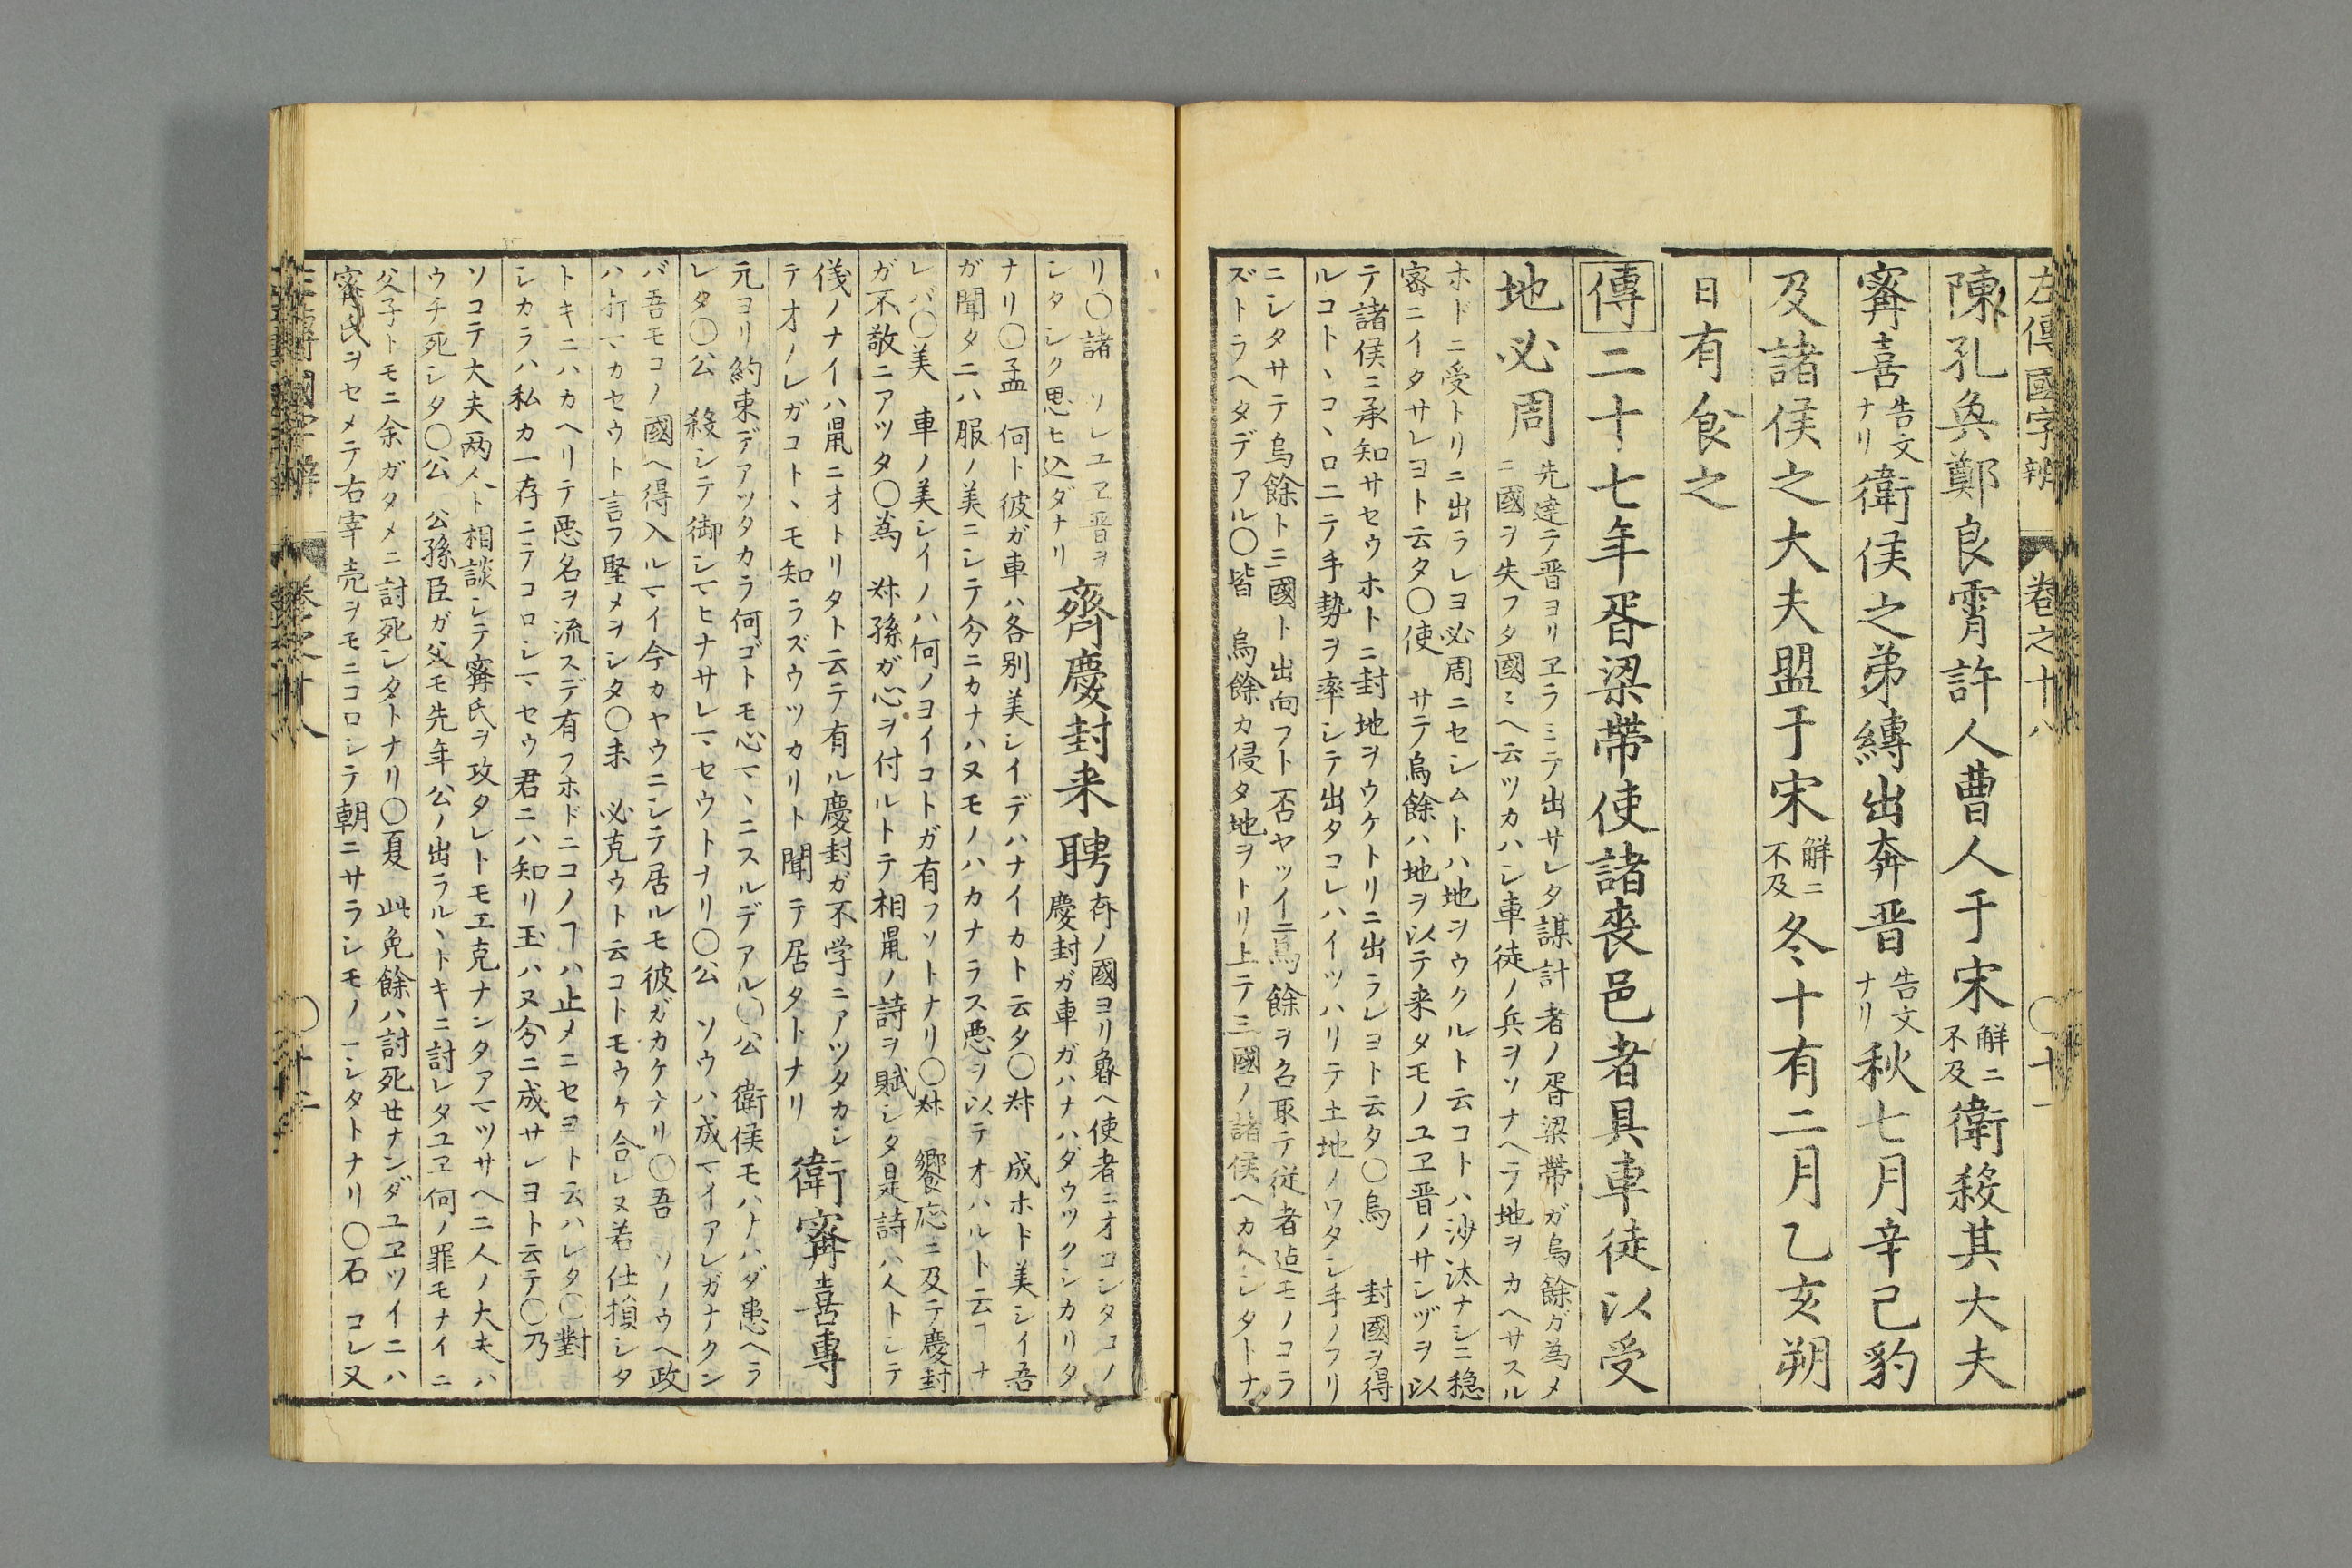 左傳國字辨 卷之十八 ○十一
陳孔奐鄭良霄許人曹人于宋解ニ不及衛殺其大夫
甯喜告文ナリ衛侯之弟鱄出奔晋告文ナリ秋七月辛己豹
及諸侯之大夫盟于宋解ニ不及冬十有二月乙亥朔
日有食之
傳二十七年胥梁帶使諸喪邑者具車徒以受
地必周先達テ晋ヨリヱラミテ出サレタ謀計者ノ胥梁帶ガ烏餘ガ為メ
ニ國ヲ失フタ國ミヘ云ツカハシ車徒ノ兵ヲソナヘテ地ヲカヘサスル
ホドニ受トリニ出ラレヨ必周ニセシムトハ地ヲウクルト云コトハ沙汰ナシニ穏
密ニイタサレヨト云タ○使 サテ烏餘ハ地ヲ以テ来タモノユヱ晋ノサシヅヲ以
テ諸侯ニ承知サセウホトニ封地ヲウケトリニ出ラレヨト云タ○烏 封國ヲ得
ルコトヽコヽロニテ手勢ヲ率シテ出タコレハイツハリテ土地ノワタシ手ノフリ
ニシタサテ烏餘ト三國ト出向フト否ヤツイニ烏餘ヲ召取テ従者迠モノコラ
ズトラヘタデアル○皆 烏餘カ侵タ地ヲトリ上テ三國ノ諸侯ヘカヘシタトナ
リ○諸 ソレユヱ晋ヲ
シタシク思ヒ込ダナリ
齊慶封来聘斉ノ國ヨリ魯ヘ使者ニオコシタコノ
慶封ガ車ガハナハダウツクシカリタ
ナリ○孟 何ト彼ガ車ハ各別美シイデハナイカト云タ○叔 成ホト美シイ吾
ガ聞タニハ服ノ美ニシテ分ニカナハヌモノハカナラス悪ヲ以テオハルト云ヿナ
レバ○美 車ノ美シイノハ何ノヨイコトガ有フソトナリ○叔 饗応ニ及テ慶封
ガ不敬ニアツタ○為 叔孫ガ心ヲ付ルトテ相鼠ノ詩ヲ賦シタ是詩ハ人トシテ
儀ノナイハ鼠ニオトリタト云テ有ル慶封ガ不学ニアツタカシ
テオノレガコトヽモ知ラズウツカリト聞テ居タトナリ
衛甯喜專
元ヨリ約束デアツタカラ何ゴトモ心マヽニスルデアル○公 衛侯モハナハダ患ヘラ
レタ○公 殺シテ御シマヒナサレマセウトナリ○公 ソウハ成マイアレガナクン
バ吾モコノ國ヘ得入ルマイ今カヤウニシテ居ルモ彼ガカケナリ○吾 ソノウヘ政
ハ打マカセウト言フ堅メヲシタ○未 必克ウト云コトモウケ合レヌ若仕損シタ
トキニハカヘリテ悪名ヲ流スデ有フホドニコノヿハ止メニセヨト云ハレタ○對
シカラハ私カ一存ニテコロシマセウ君ニハ知リ玉ハヌ分ニ成サレヨト云テ○乃
ソコテ大夫両人ト相談シテ甯氏ヲ攻タレトモエ克ナンタアマツサヘ二人ノ大夫ハ
ウチ死シタ○公 公孫臣ガ父モ先年公ノ出ラルヽトキニ討レタユヱ何ノ罪モナイニ
父子トモニ余ガタメニ討死シタトナリ○夏 此免餘ハ討死セナンダユヱツイニハ
甯氏ヲセメテ右宰売ヲモニコロシテ朝ニサラシモノーシタトナリ○石 コレ又